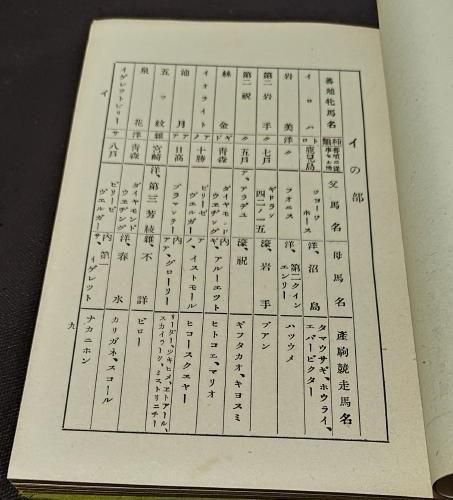 イの部
蕃殖牝馬名 種類 蕃殖に從事せる地 父馬名 母馬名 産駒競走馬名
イロハ ト 鹿兒島 ジョージホース 洋、沼島 タマウサギ、ホウライ、エバービクター
岩美 洋 ク フオニス 洋 第二クインエンリー ハツウメ
第二岩手 ク 七戸 ギドラン四二ノ一五 濠、岩手 ブアン
第二祝 ク 五戸 ア、アラデユ 濠、祝 ギフタカオ、キヨスミ
絲金 ギ 青森 ダイヤモンドウエヂング 内 アルーエツト ヒトコエ、マリオ
イオライト ア 十勝 ビリーゼヴエルガー ア ノ、イストモール ヒコースクエヤー
池月 ア 日高 ブラマンテー 内 ア、グローリー リーダー、ツキヒメ、エトアール、スカイラーク、ミストリニチー
五ッ紋 雜 宮崎 洋、第三芳綾 雜、不詳 ビロー
泉花 洋 青森 ダイヤモンドウエヂング 洋、春水 カリガネ、スコール
イグレツトビリー サ 八戸 ビリーゼヴエルガー 内 第一サ、イグレツト ナカニホン
イ
九